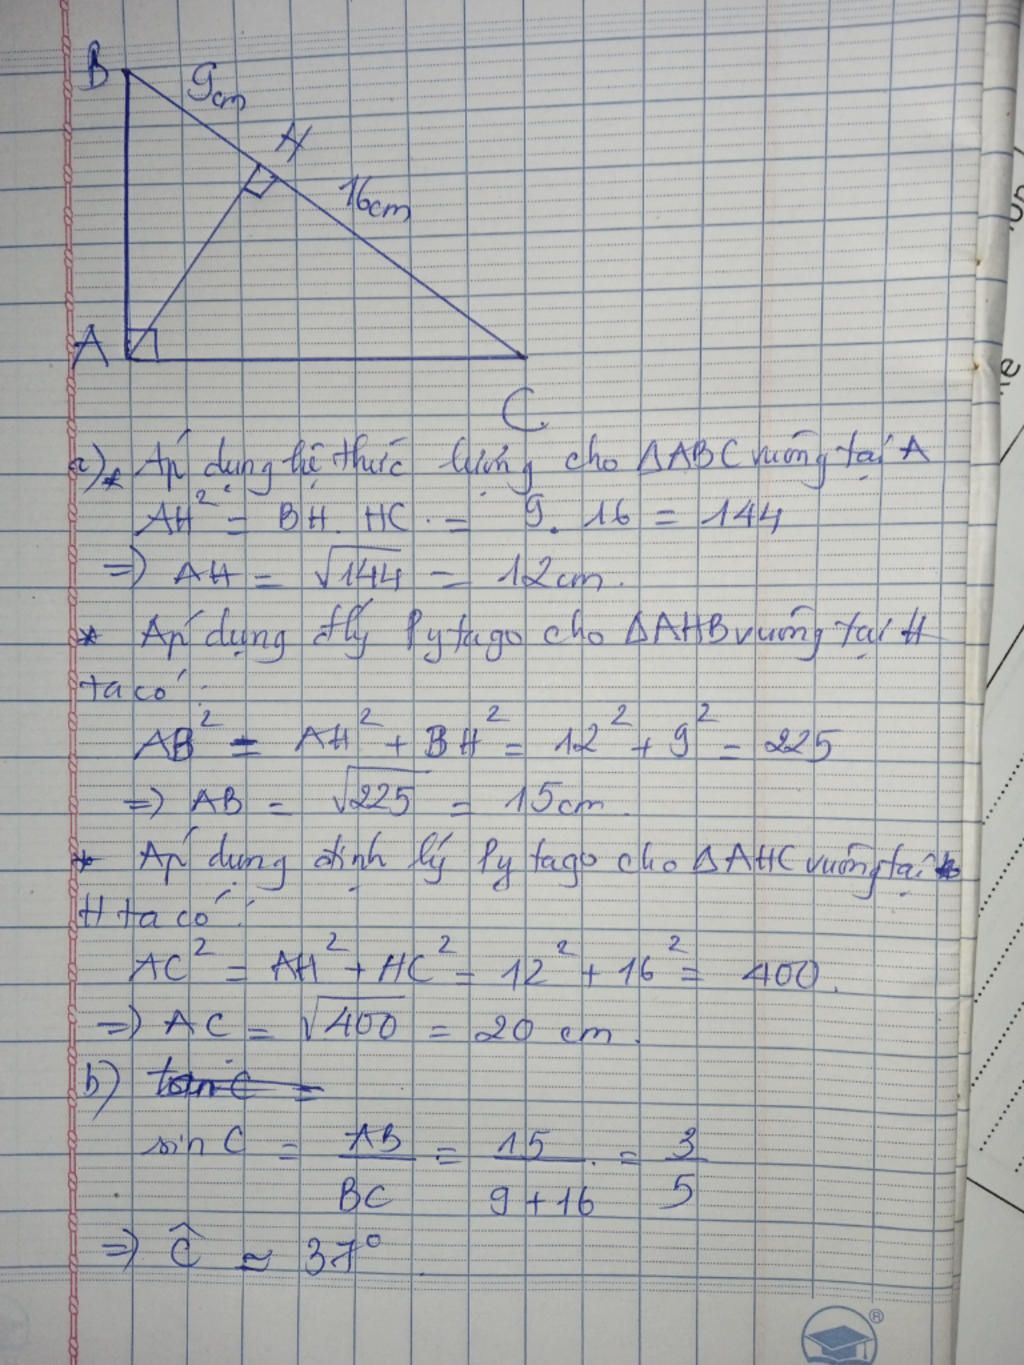 B
9cm
H
16cm
A
C
a) * Áp dụng hệ thức lượng cho ΔABC vuông tại A
AH² = BH . HC = 9 . 16 = 144
=> AH = √144 = 12cm.
* Áp dụng đlý Pytago cho ΔAHB vuông tại H
ta có :
AB² = AH² + BH² = 12² + 9² = 225
=> AB = √225 = 15cm
* Áp dụng định lý Pytago cho ΔAHC vuông tại
H ta có :
AC² = AH² + HC² = 12² + 16² = 400.
=> AC = √400 = 20 cm.
b) tan C =
sin C = AB/BC = 15/9+16 = 3/5
=> Ĉ ≈ 37°
®